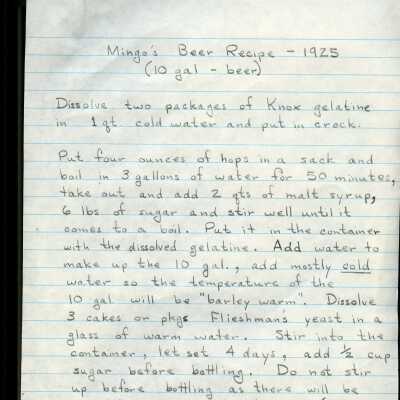 Mingo's Beer Recipe - 1925
(10 gal - beer)
Dissolve two packages of Knox gelatine
in 1 qt cold water and put in crock.
Put four ounces of hops in a sack and
boil in 3 gallons of water for 50 minutes,
take out and add 2 qts of malt syrup,
6 lbs of sugar and stir well until it
comes to a boil. Put it in the container
with the dissolved gelatine. Add water to
make up the 10 gal., add mostly cold
water so the temperature of the
10 gal will be "barley warm". Dissolve
3 cakes or pkgs Flieshman's yeast in a
glass of warm water. Stir into the
container, let set 4 days, add 1/2 cup
sugar before bottling. Do not stir
up before bottling as there will be